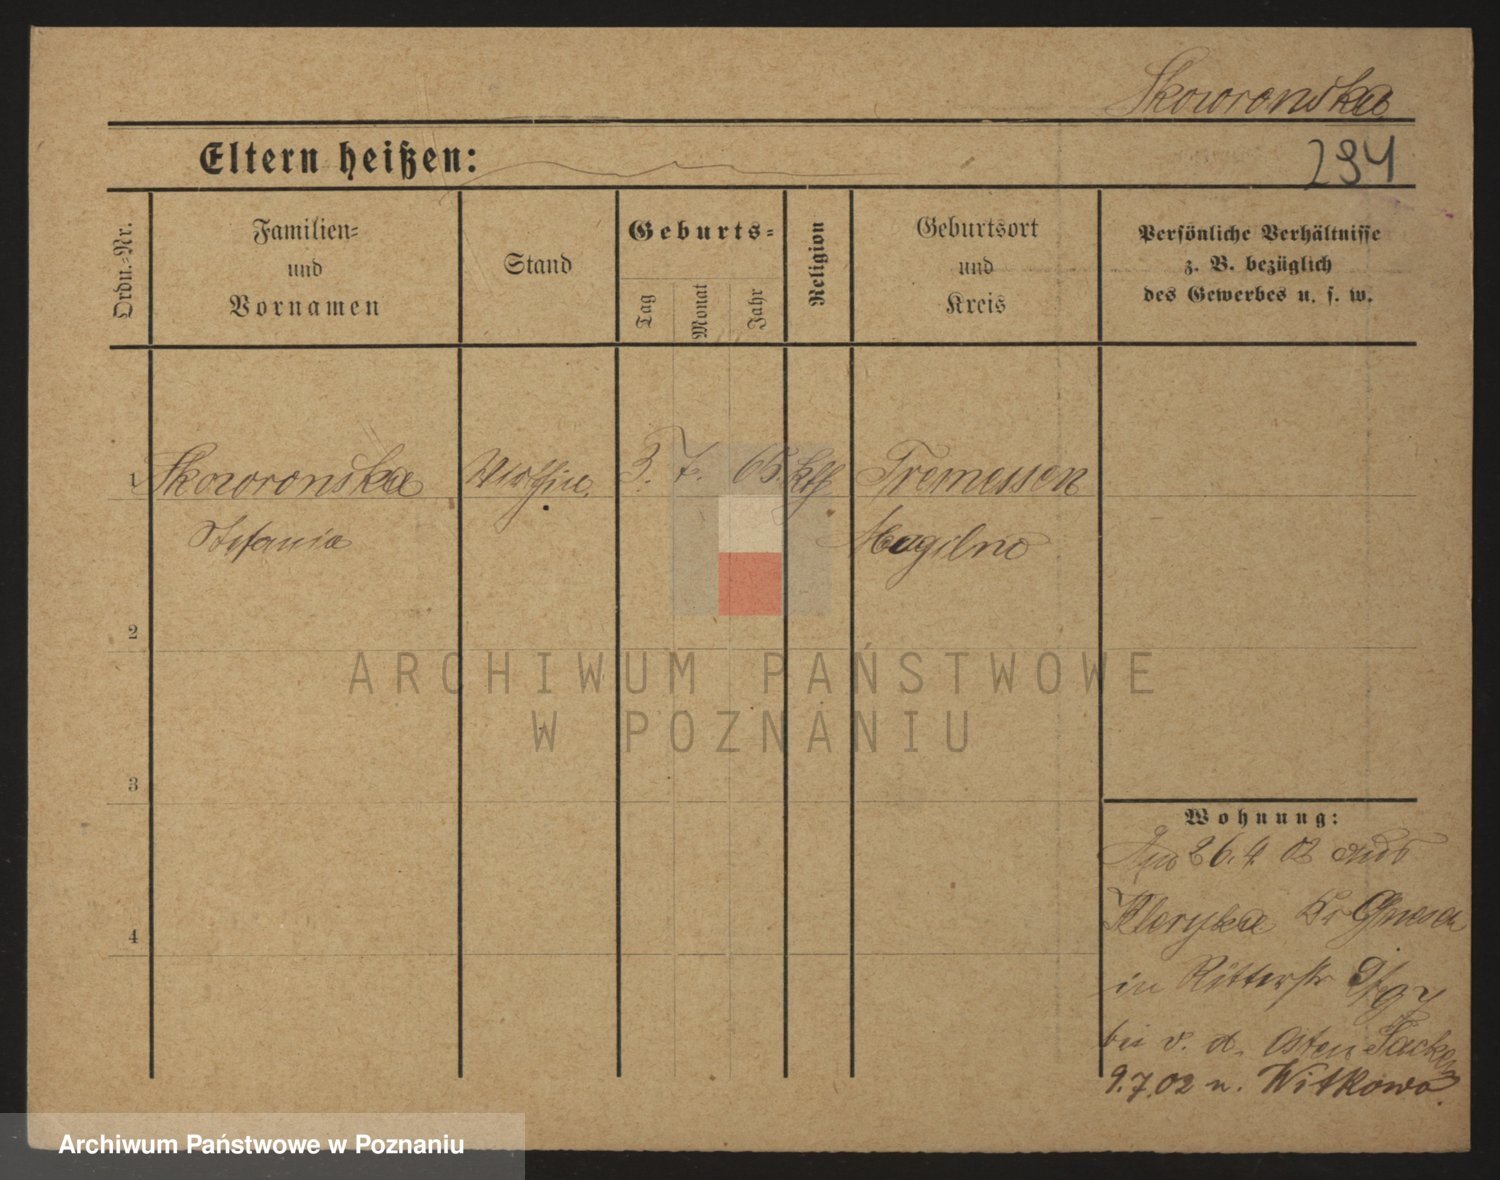 Skoworonska
294
Eltern heißen:
Ordn.-Nr.
Familien-
und
Vornamen
Stand
Geburts-
Tag
Monat
Jahr
Religion
Geburtsort
und
Kreis
Persönliche Verhältnisse
z. B. bezüglich
des Gewerbes u. s. w.
1 Skoworonska 3. 7. 65. kth Tremessen
Stefania Mogilno
2
ARCHIWUM PAŃSTWOWE
W POZNANIU
3
Wohnung:
26. 4. 02 aus
Kr Gnesen
in Ritterstr
bei v. d. Osten Sacken
4
9.7.02 n. Witkowo.
Archiwum Państwowe w Poznaniu